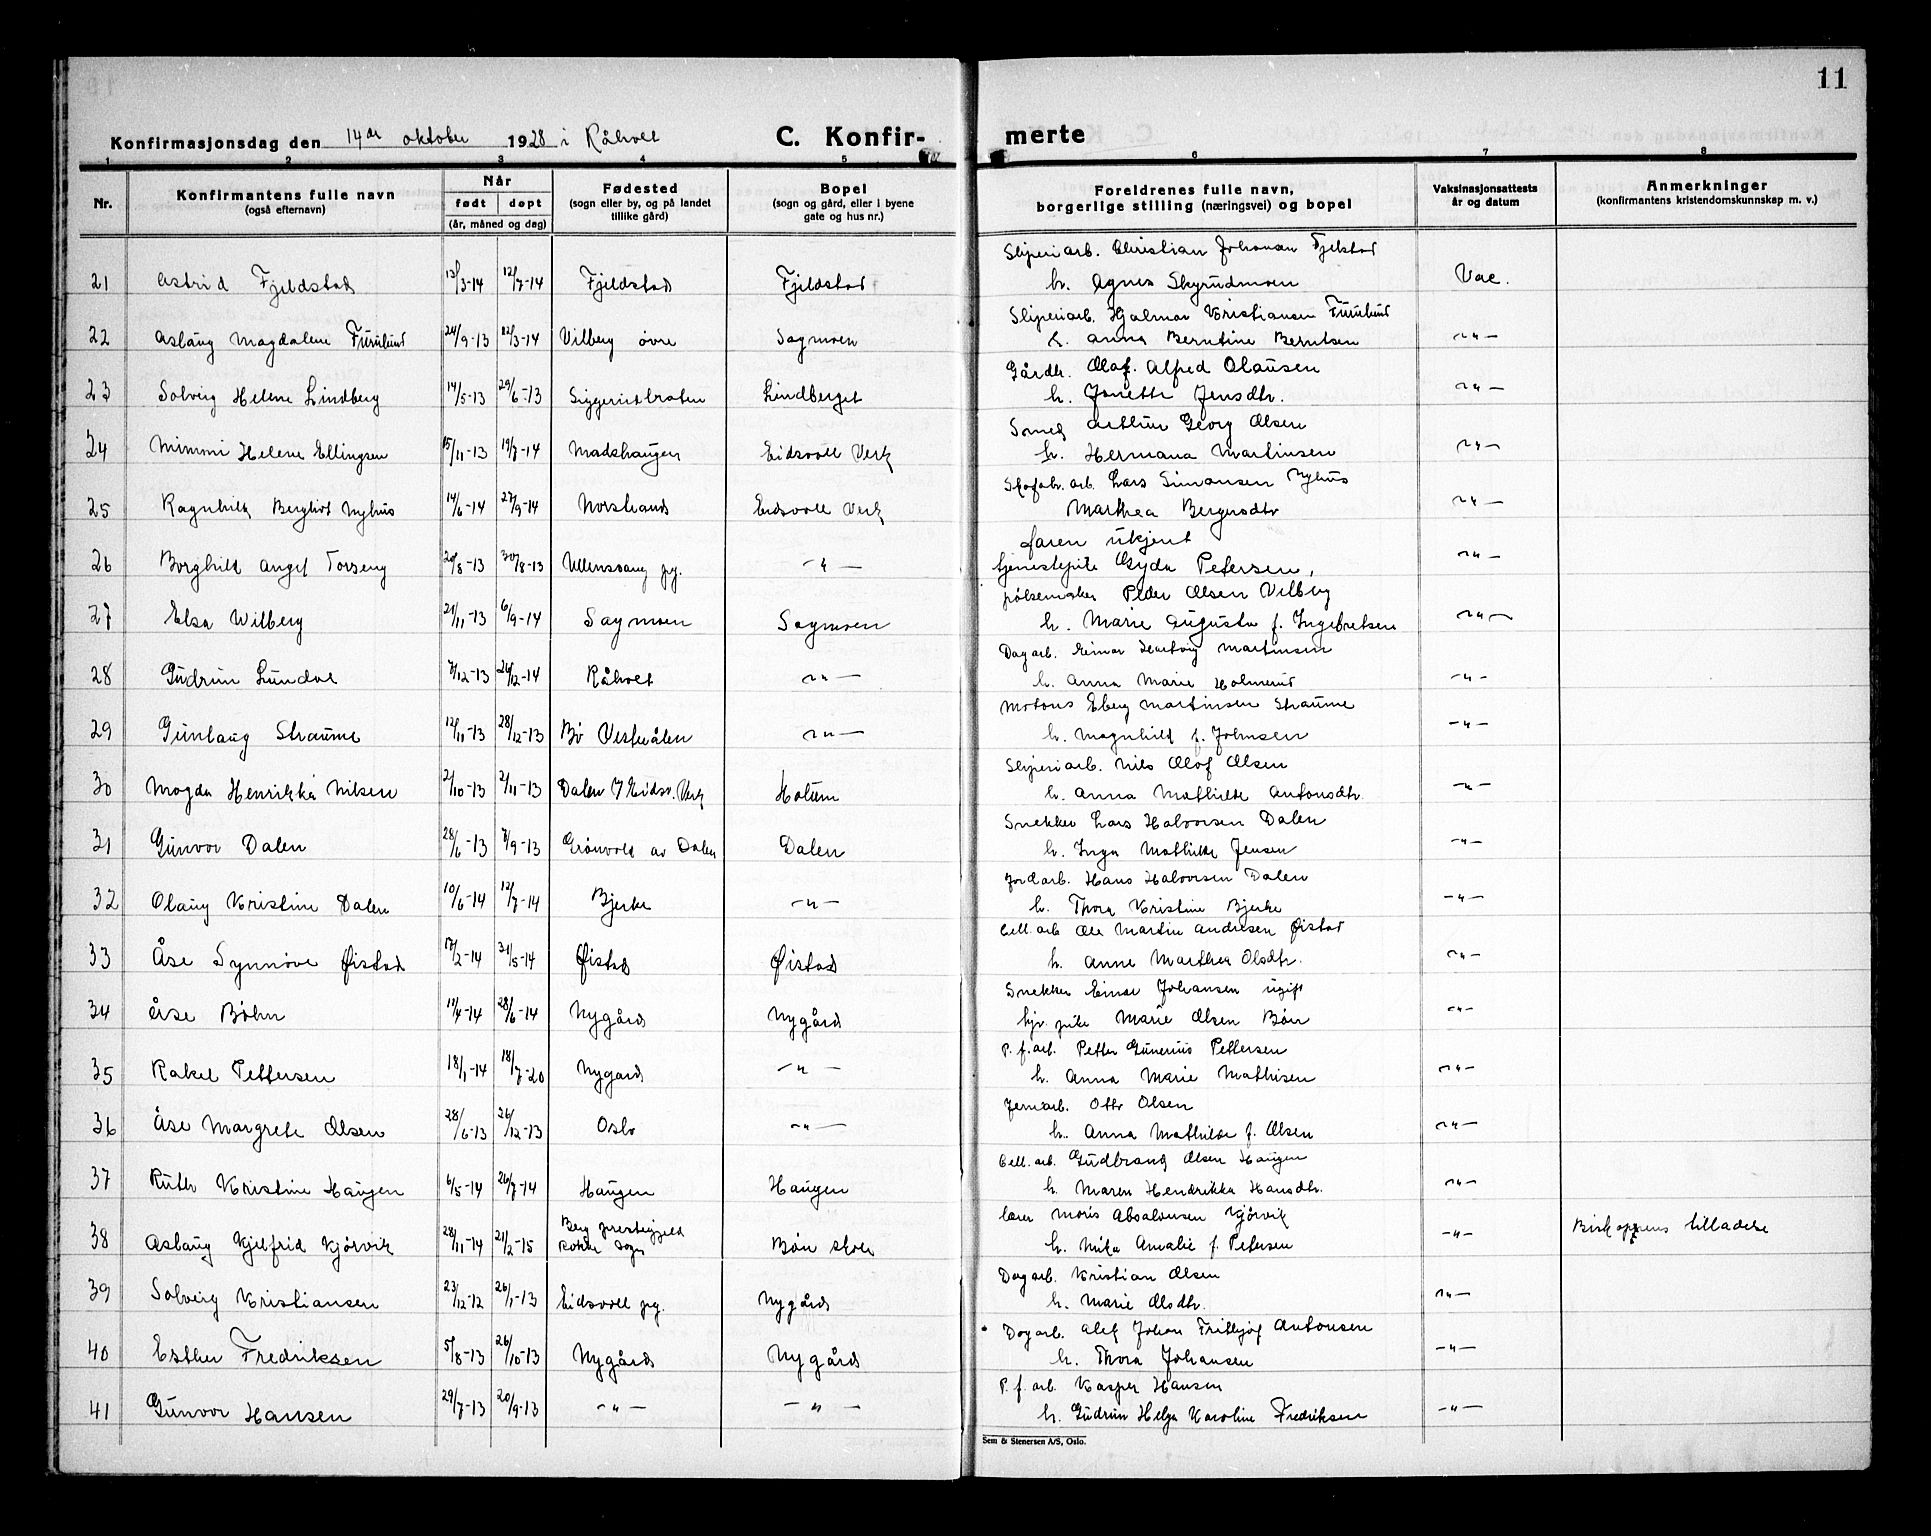 11
Konfirmasjonsdag den 14de oktober 1928 i Råholt
C. Konfirmerte
1 2 3 4 5 6 7 8
Nr.
Konfirmantens fulle navn
(også efternavn)
Når
født døpt
(år, måned og dag)
Fødested
(sogn eller by, og på landet
tillike gård)
Bopel
(sogn og gård, eller i byene
gate og hus nr.)
Foreldrenes fulle navn,
borgerlige stilling (næringsvei) og bopel
Vaksinasjonsattests
år og datum
Anmerkninger
(konfirmantens kristendomskunnskap m. v.)
Sliperiarb. Christian Johansen Fjelstad
21 Astrid Fjeldstad 13/3-14 12/7-14 Fjeldstad Fjeldstad h. Agnes Skyrudmoen Vac.
Sliperiarb. Hjalmar Kristiansen Furulund
22 Aslaug Magdalene Furulund 24/9-13 12/3-14 Vilberg øvre Sagmoen h. Anna Berntine Berntsen -"-
Gårdbr. Olaf Alfred Olausen
23 Solveig Helene Lindberg 14/5-13 29/6-13 Lindberget h. Jonette Jensdtr. -"-
Smed Arthur Georg Olsen
24 Mimmi Helene Ellingsen 15/11-13 19/7-14 Madshaugen Eidsvoll Verk h. Hermana Martinsen -"-
arb. Lars Simonsen Nyhus
25 Ragnhild Bergliot Nyhus 14/6-14 27/9-14 Norstrand Eidsvoll Verk Marthea Bergersdtr -"-
faren ukjent
26 Borghild Angel Torseng 20/8-13 30/8-13 Ullensvang pg. -"- tjenestepike Gyda Petersen, -"-
pølsemaker Peder Olsen Vilberg
27 Elsa Wilberg 21/11-13 6/9-14 Sagmoen Sagmoen h. Marie Augusta f. Ingebretsen -"-
Dagarb. Einar Hartvig Martinsen
28 Gudrun Lundval 7/12-13 26/12-14 Råholt -"- h. Anna Marie Holmerud -"-
Eberg Martinsen Straume
29 Gunlaug Straume 12/11-13 28/12-13 Bø Vesterålen -"- h. Magnhild f. Johnsen -"-
Sliperiarb. Nils Olof Olsen
30 Magda Henrikka Nilsen 2/10-13 2/11-13 Dalen 7 Eidsv. Verk Holum h. Anna Mathilde Antonsdtr. -"-
Snekker Lars Halvorsen Dalen
31 Gunvor Dalen 28/6-13 7/9-13 Grønvold av Dalen Dalen h. Inga Mathilde Jensen -"-
Jordarb. Hans Halvorsen Dalen
32 Olaug Kristine Dalen 10/6-14 12/7-14 Bjerke -"- h. Thora Kristine Bjerke -"-
Cell. arb Ole Martin Andresen Øistad
33 Åse Synnøve Øistad 17/2-14 31/5-14 Øistad Øistad h. Anne Marthea Olsdtr. -"-
Snekker Einar Johansen ugift
34 Åse Bøhn 17/4-14 28/6-14 Nygård Nygård hjv. pike Marie Olsen Bøn -"-
P. f. arb. Petter Gunerius Pettersen
35 Rakel Pettersen 18/1-14 18/7-20 Nygard -"- h. Anna Marie Mathisen -"-
Jernarb. Otto Olsen
36 Åse Margrete Olsen 28/6-13 26/12-13 Oslo -"- h. Anna Mathilde f. Olsen -"-
Cell. arb. Gudbrand Olsen Haugen
37 Ruth Kristine Haugen 6/5-14 26/7-14 Haugen Haugen h. Maren Hendrikka Hansdtr. -"-
lærer Moris Absalonsen Kjørvik
38 Aslaug Kjelfrid Kjørvik 28/11-14 21/2-15 Berg prestegjeld Rokke sogn Bøn skole h. Mika Amalie f. Petersen -"- Biskoppens tilladelse
Dagarb. Kristian Olsen
39 Solveig Kristiansen 23/12-12 26/1-13 Eidsvoll pg. Nygård h. Marie Olsdtr. -"-
Dagarb. Alef Johan Fritbjof Antonsen
40 Esther Fredriksen 5/8-13 26/10-13 Nygård Nygård h. Thora Johansen -"-
P. f. arb. Kasper Hansen
41 Gunvor Hansen 29/7-13 20/9-13 -"- -"- h. Gudrun Helga Karoline Fredriksen -"-
Sem & Stenersen A/S, Oslo.